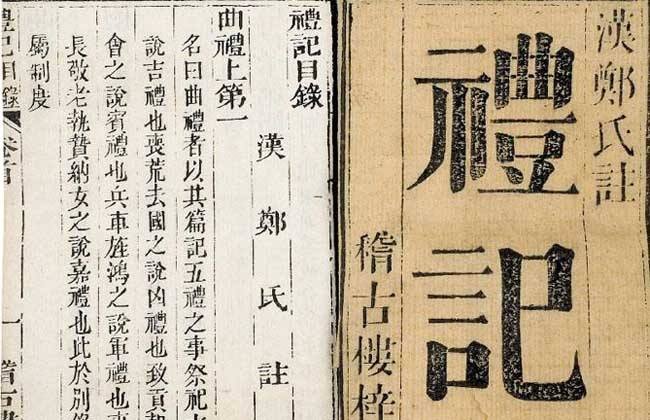 漢鄭氏註
禮記
稽古樓梓
禮記目錄
漢鄭氏註
曲禮上第一
名曰曲禮者以其篇記五禮之事祭祀
說吉禮也喪荒去國之說凶禮也致貢朝
會之說賓禮也兵車旌鴻之說軍禮也事
長敬老執贄納女之說嘉禮也此於別錄
屬制度
禮記目錄 卷首 一 稽古樓